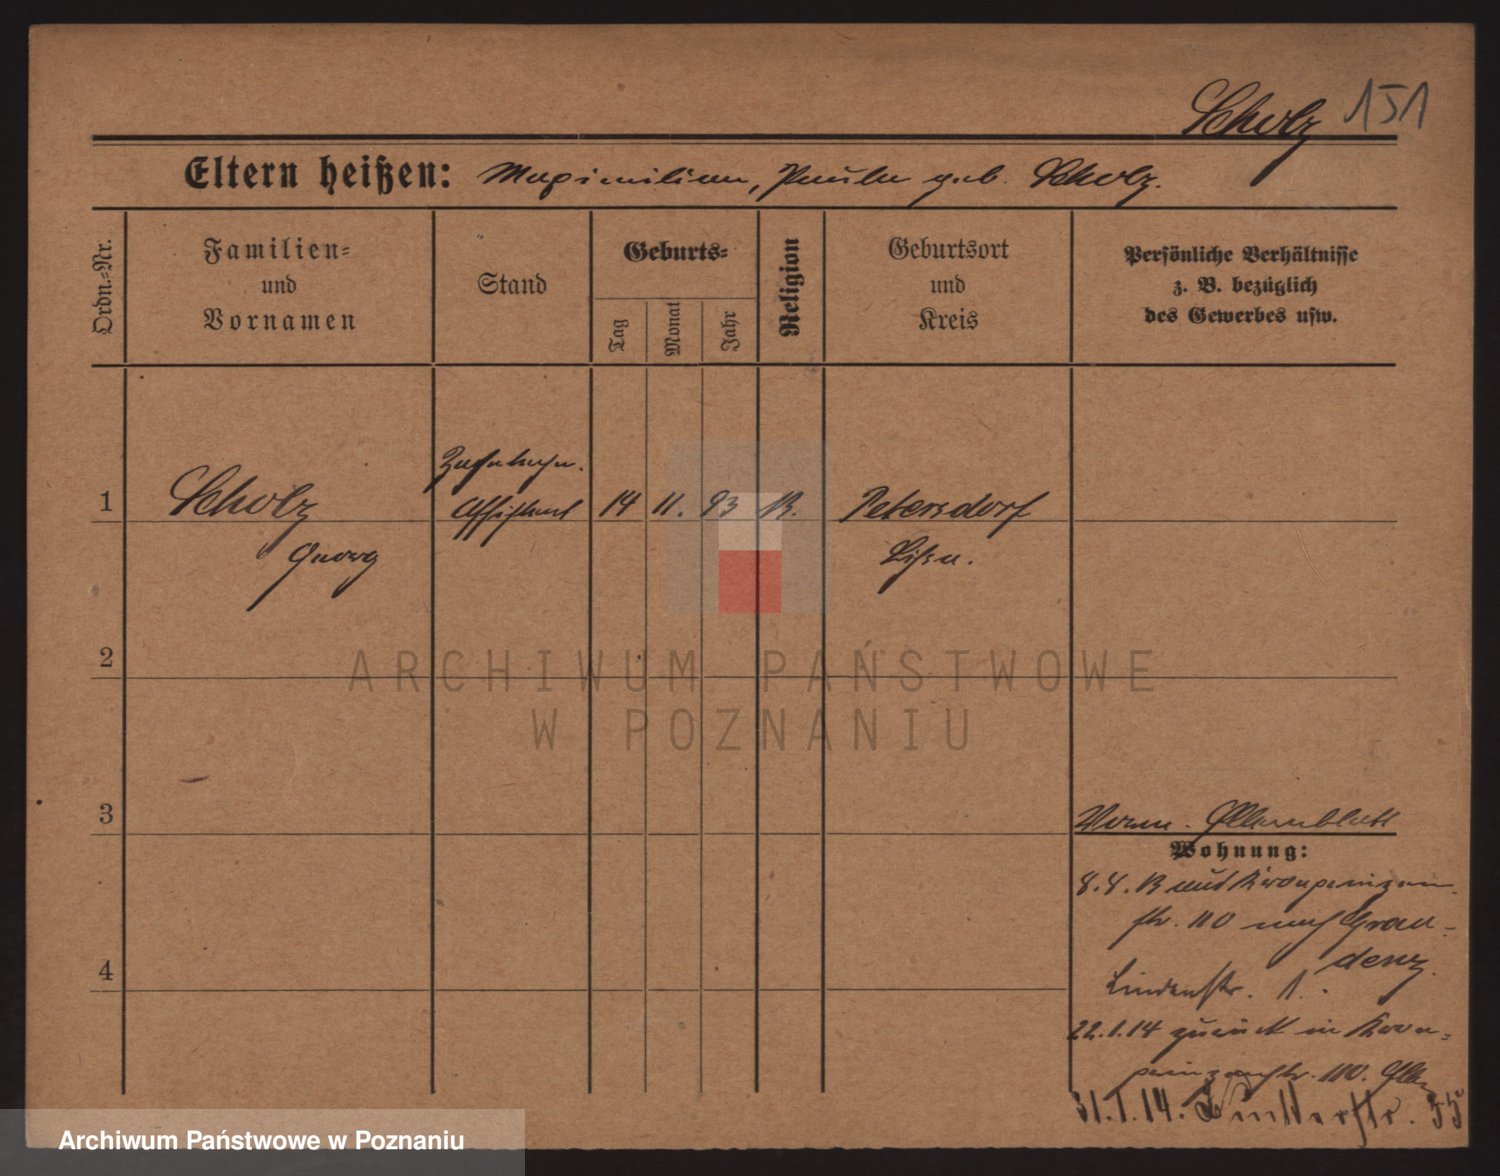 Scholz 151
Eltern heißen: Maximilian, Paula geb. Scholz.
Ordn.-Nr.
Familien-
und
Vornamen
Stand
Geburts-
Tag
Monat
Jahr
Religion
Geburtsort
und
Kreis
Persönliche Verhältnisse
z. B. bezüglich
des Gewerbes usw.
1
Scholz
Georg
Assistent
14 11. 93 K.
Petersdorf
Lissa.
2
3
4
Elternblatt
Wohnung:
8.4.13 aus Kronprinzen-
str. 110 nach Grau-
denz.
Lindenstr. 1.
22.1.14 zurück in Kron-
prinzenstr. 110.
31.1.14.
ARCHIWUM PAŃSTWOWE
W POZNANIU
Archiwum Państwowe w Poznaniu